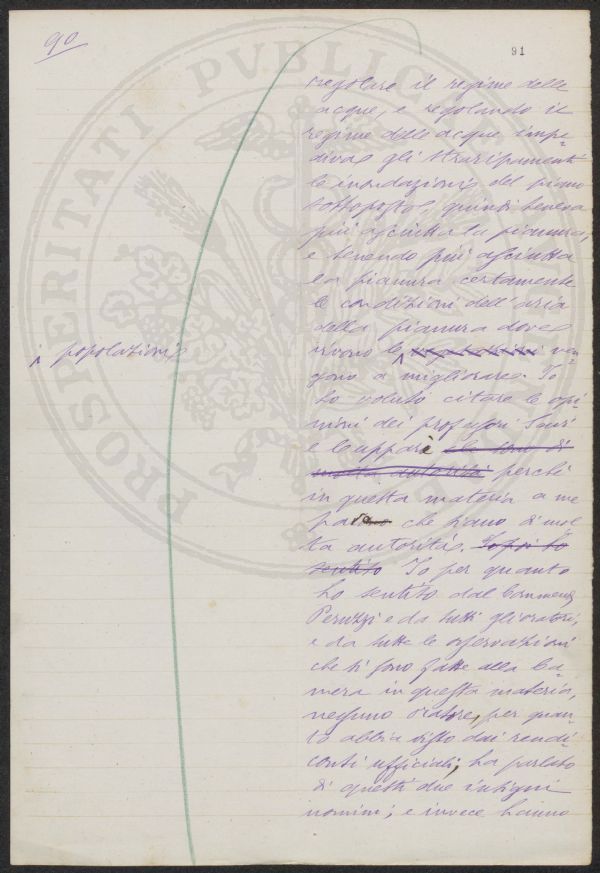 90
91
regolare il regime delle
acque, e regolando il
regime delle acque impe-
diva gli straripamenti
le inondazioni del piano
sottoposto, quindi teneva
più asciutta la pianura,
e tenendo più asciutta
la pianura certamente
le condizioni dell'aria
della pianura dove
vivono le ven-
popolazioni
gono a migliorare. Io
ho voluto citare le opi-
nioni dei professori
e perchè
in questa materia a me
che siano di mol-
ta autorità. Io poi ho
sentito Io per quanto
ho sentito dal
Peruzzi e da tutti gli oratori,
e da tutte le osservazioni
che si sono fatte alla Ca-
mera in questa materia,
nessuno oratore, per quan-
to abbia visto dai rendi-
conti ufficiali, ha parlato
di questi due insigni
uomini; e invece hanno
PROSPERITATI PVBLICAE